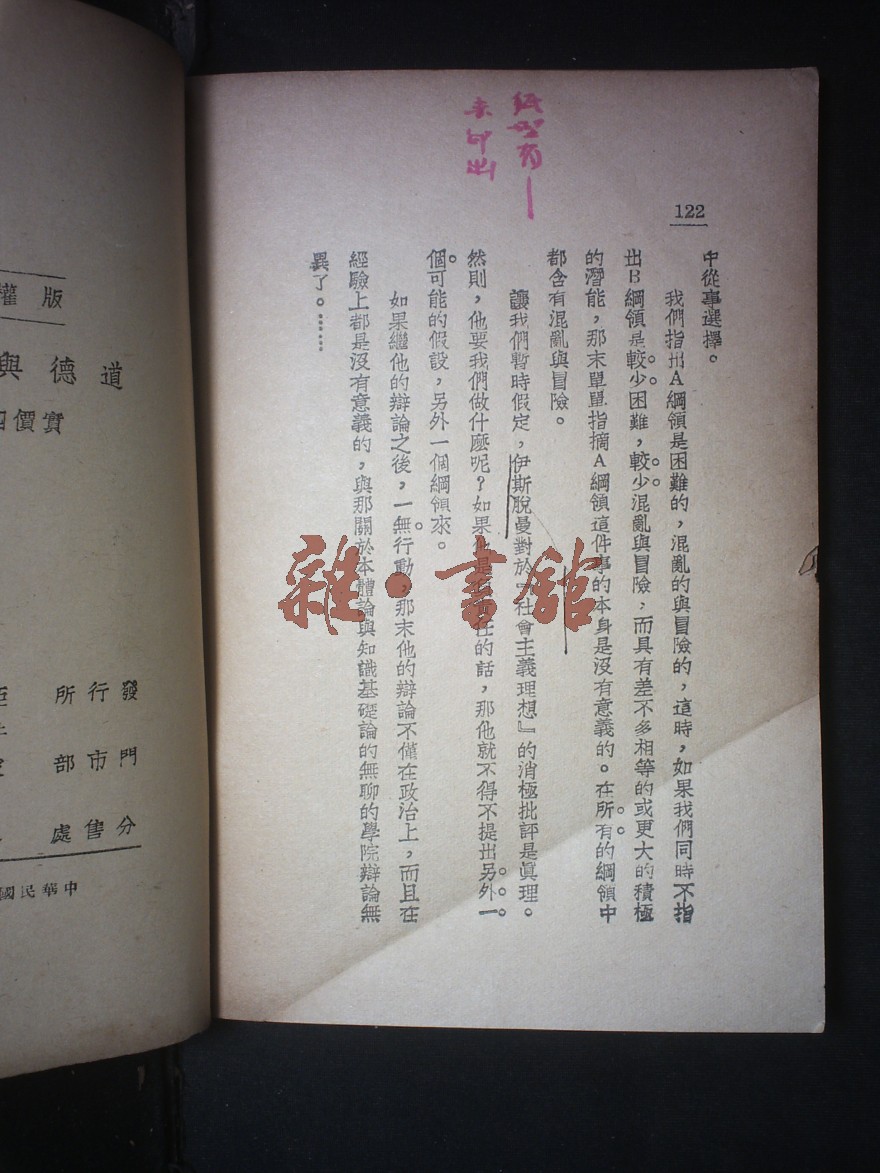 122
紙型有一
未印出
中從事選擇。
我們指出A綱領是困難的，混亂的與冒險的，這時，如果我們同時不指
出B綱領是較少困難，較少混亂與冒險，而具有差不多相等的或更大的積極
的潛能，那末單單指摘A綱領這件事的本身是沒有意義的。在所有的綱領中
都含有混亂與冒險。
讓我們暫時假定，伊斯脫曼對於『社會主義理想』的消極批評是眞理。
然則，他要我們做什麼呢？如果他是 任的話，那他就不得不提出另外一
個可能的假設，另外一個綱領來。
如果繼他的辯論之後，一無行動，那末他的辯論不僅在政治上，而且在
經驗上都是沒有意義的，與那關於本體論與知識基礎論的無聊的學院辯論無
異了。……
雜·書館
版權
道德與
實價
發行所
門市部
分售處
中華民國